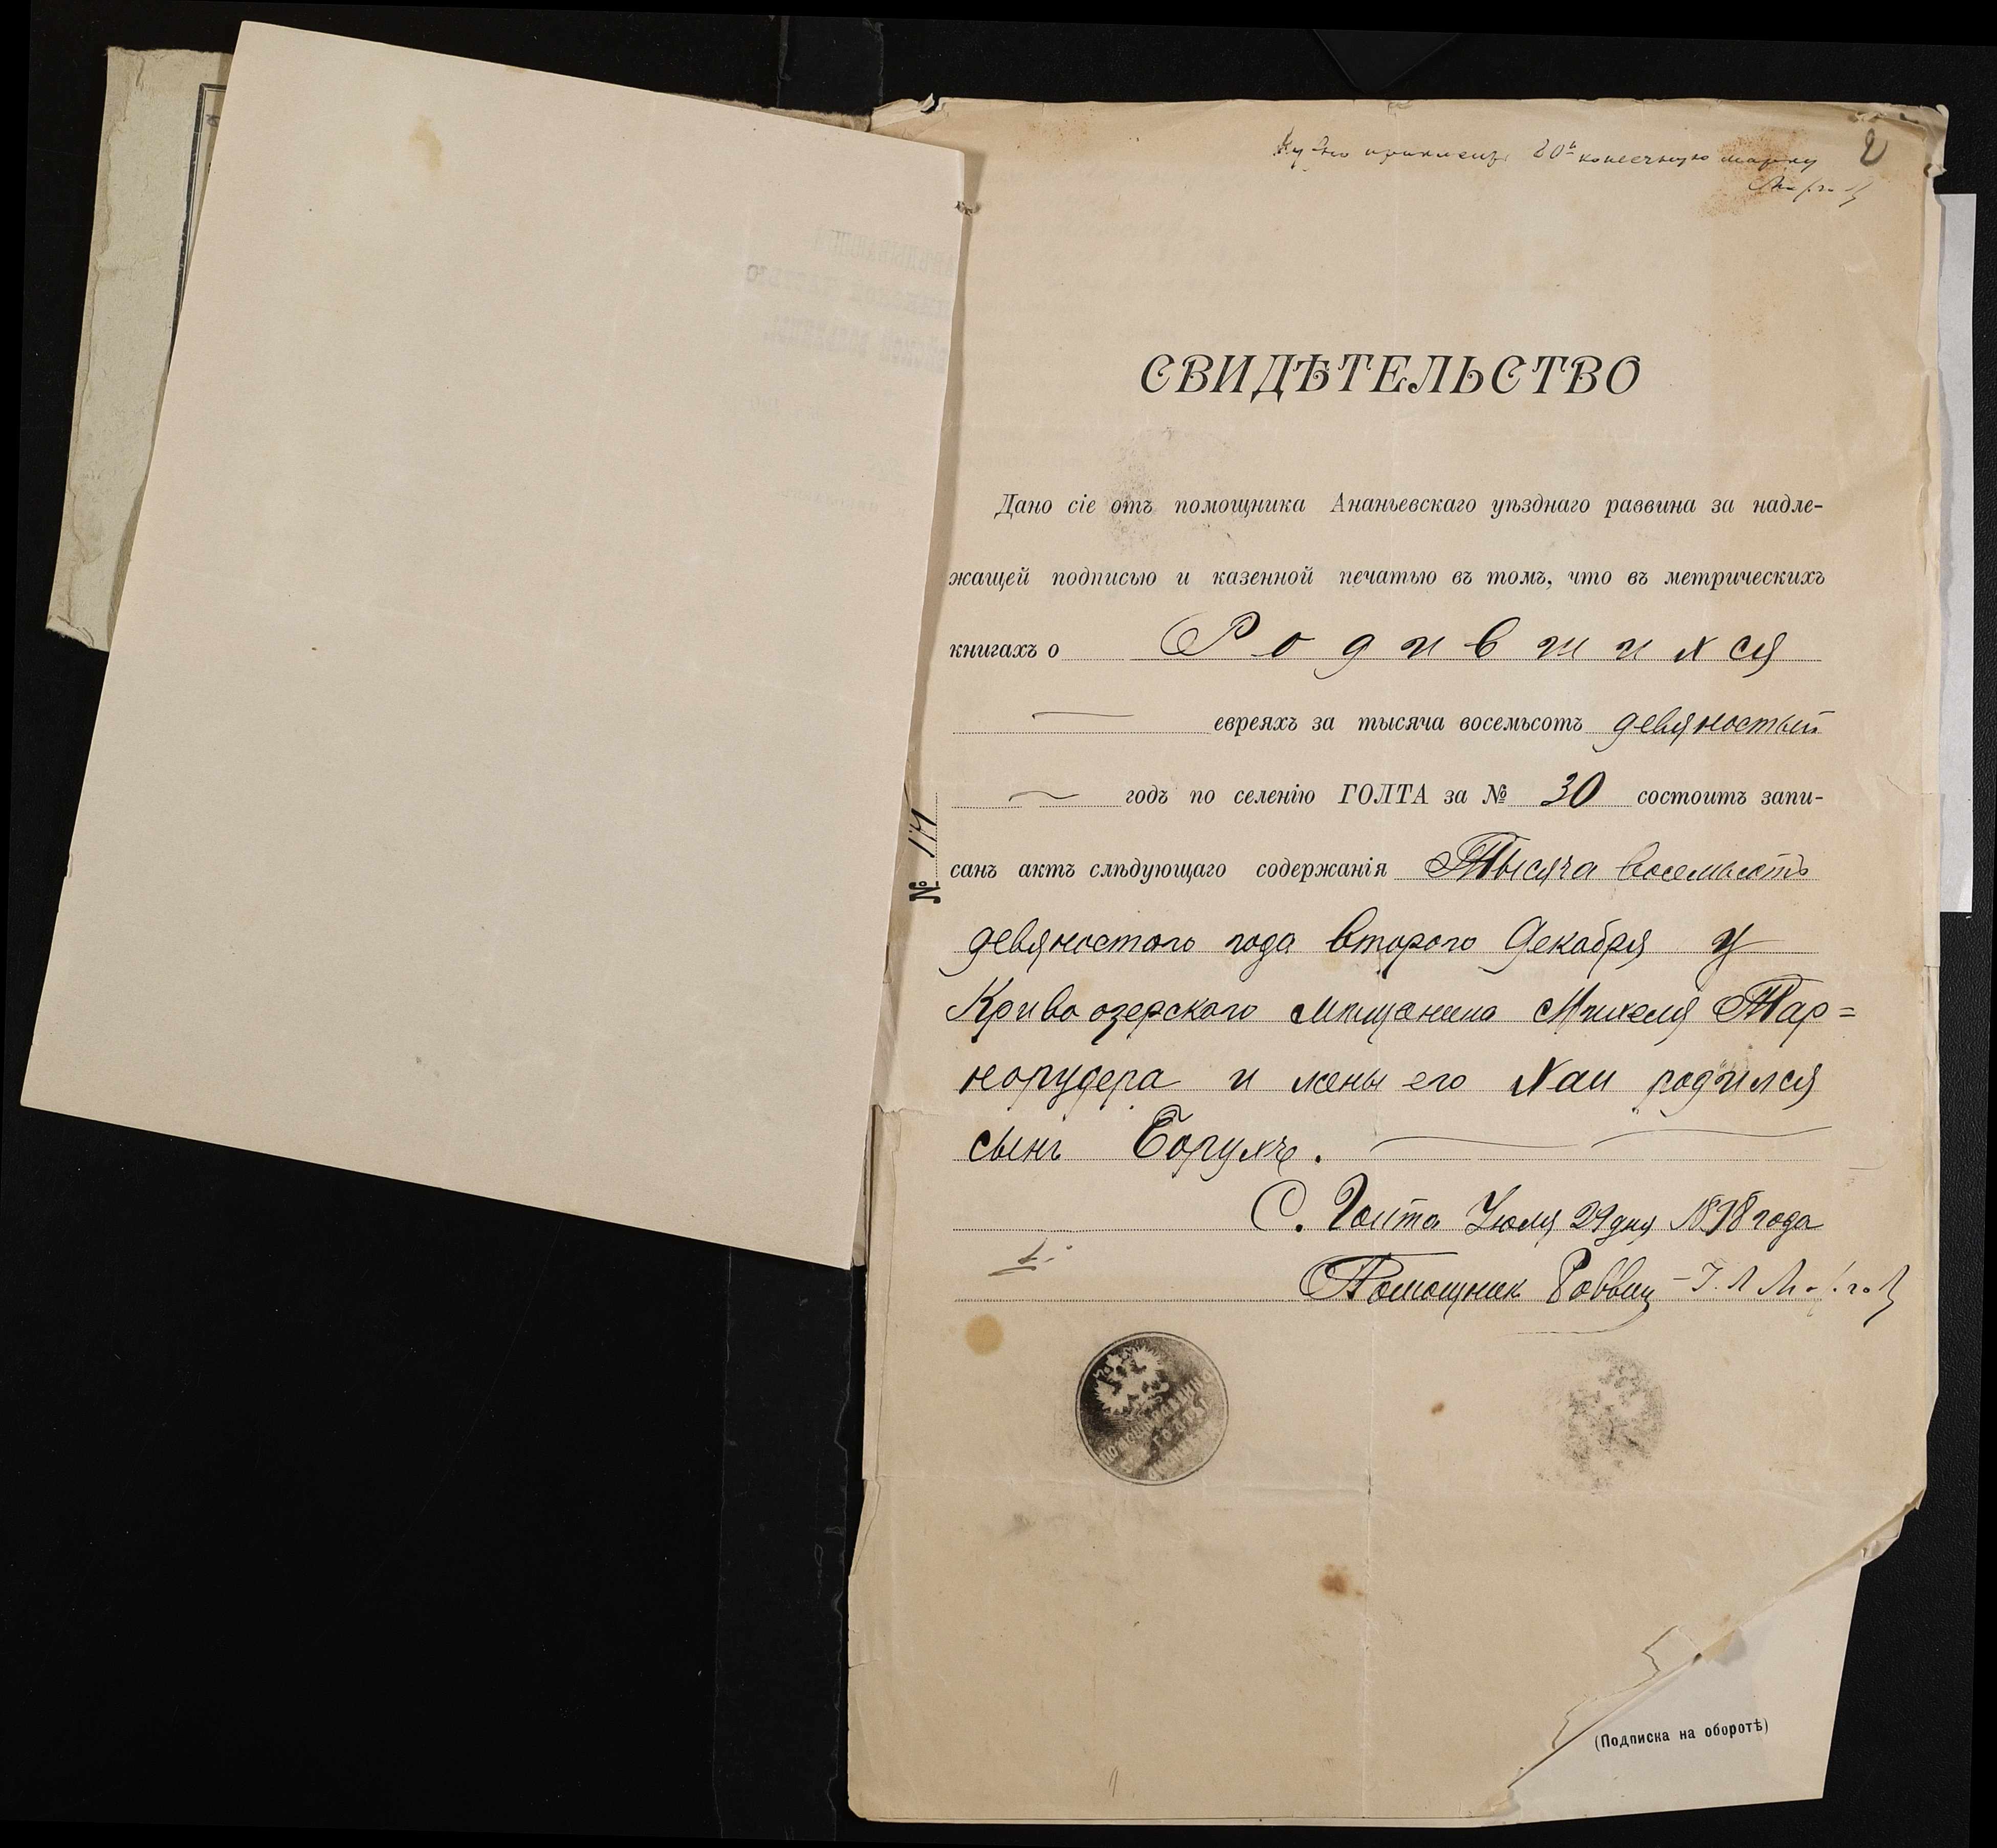 Нужно приклеить 80ᵏ копеечную марку
2
СВИДѢТЕЛЬСТВО
Дано сіе отъ помощника Ананьевскаго уѣзднаго раввина за надле-
жащей подписью и казенной печатью въ томъ, что въ метрическихъ
книгахъ о Родившихся
евреяхъ за тысяча восемьсотъ девяностый
годъ по селенію ГОЛТА за № 30 состоитъ запи-
санъ актъ слѣдующаго содержанія Тысяча восемьсотъ
девяностого года второго Декабря у
Кривоозерского мѣщанина Михеля Тар=
норудера и жены его Хаи родился
сынъ Борухъ.
С. Голта Июля 29 дня 1898 года
Помощник Раввин
№ 174
(Подписка на оборотѣ)